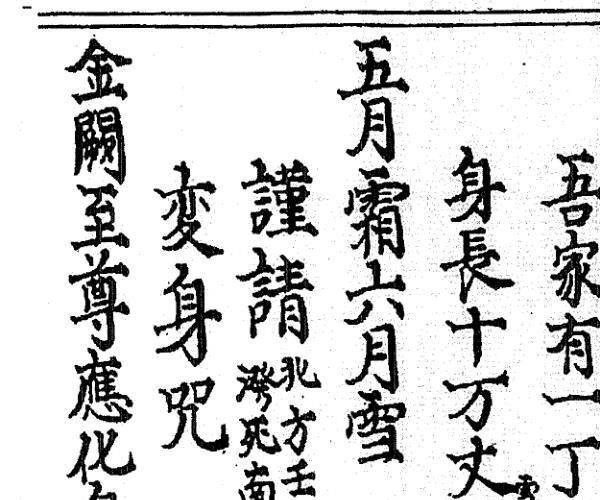 吾家有一丁
身長十万丈
五月霜六月雪
謹請
北方壬
癸死南
変身咒
金闕至尊應化